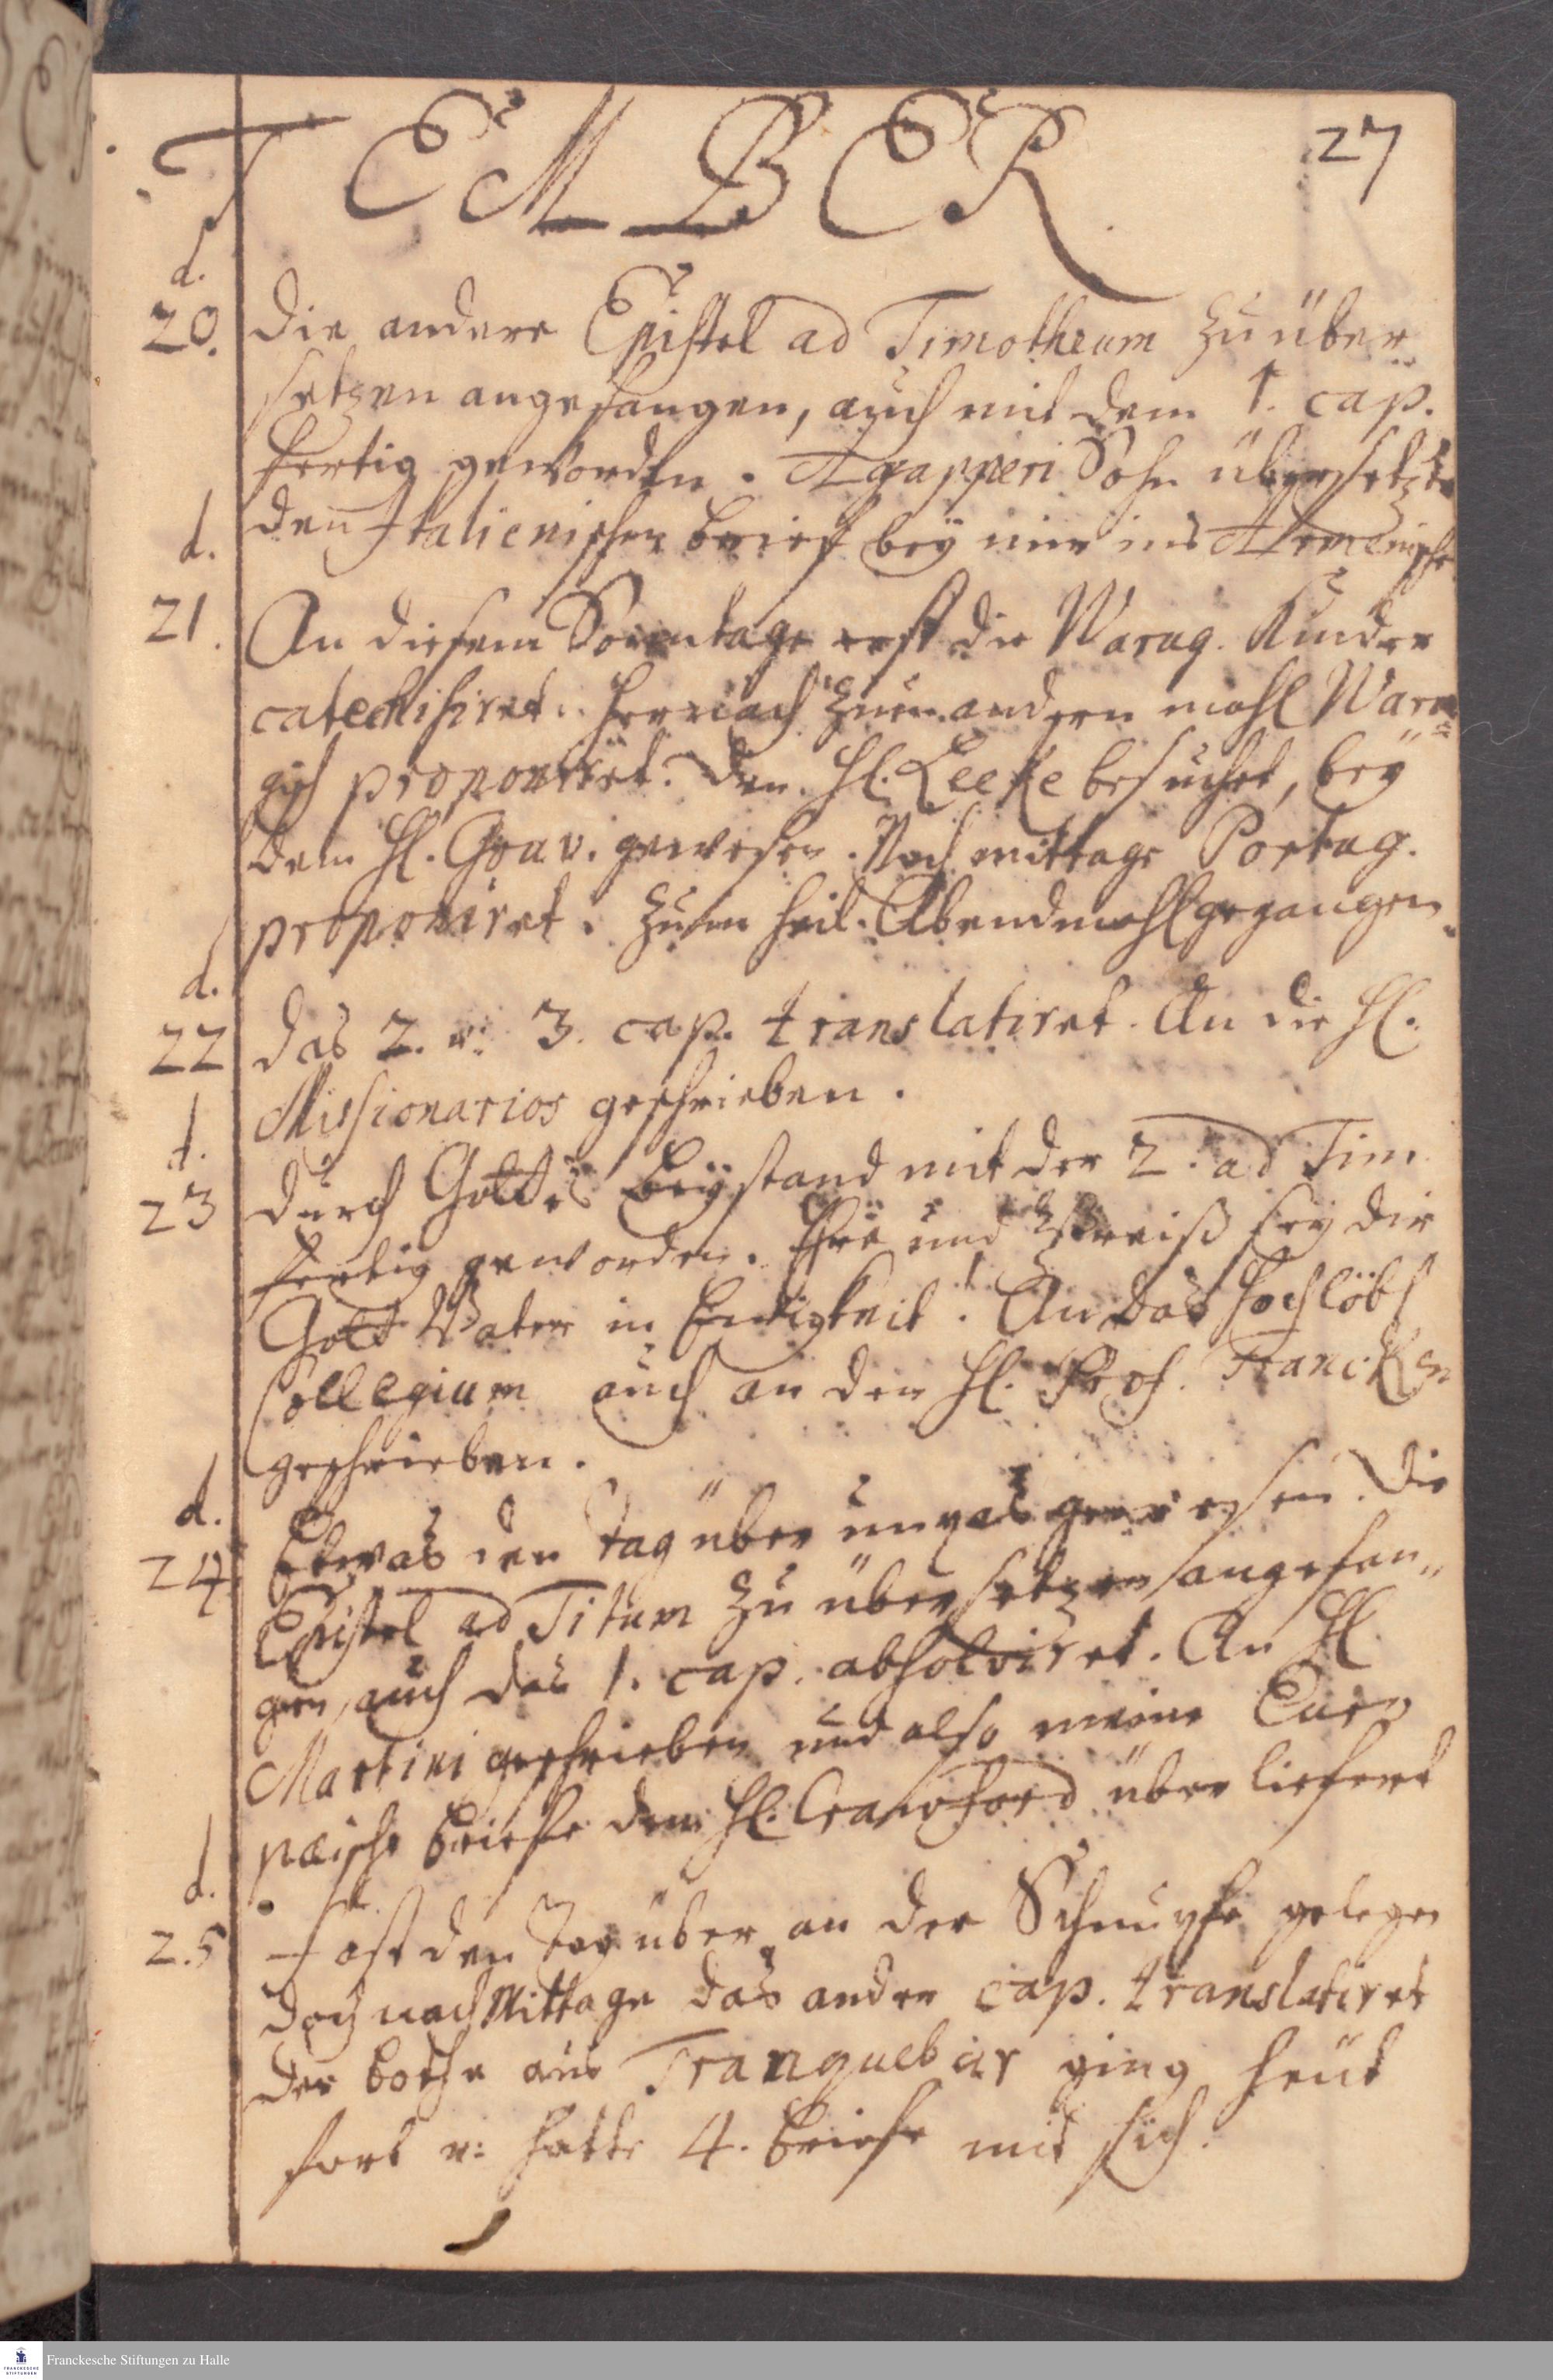 TEMBER
27
d.
20. Die andere Epistel ad Timotheum zu über
setzen angefangen, auch mit dem 1. cap.
fertig geworden. Agapperi Sohn übersetzte
d. den Italienischen brief bey mir ins Armenische
21. An diesem Sonntage erst die Warug. Kinder
catechisiret. hernach zum andern mahl Waru=
gisch proponiret. Den H. Leeke besuchet, bey
dem H. Gouv. gewesen. Nach mittage Portug.
proponiret. zum heil. Abendmahl gegangen.
d.
22 das 2. u. 3. cap. translatiret. An die H.
Missionarios geschrieben.
d.
23 durch Gottes beystand mit der 2. ad Tim
fertig geworden. Ehre und Preiß sey dir
Gott Vater in Ewigkeit. An das hochlöbl
Collegium auch an den H. Prof. Francken
geschrieben.
d.
24 Etwas den tag über unpas gewesen. Die
Epistel ad Titum zu übersetzen angefan„
gen, auch das 1. cap. absolviret. An H.
Martini geschrieben und also meine Euro
pæische briefe dem H. Crawford über liefert
d.
25 Fast den tag über an der Schnupfe gelegen
doch nach Mittage das ander cap. translatiret
der bothe aus Tranquebar ging heut
fort u: hatte 4. briefe mit sich.
Franckesche Stiftungen zu Halle
FRANCKESCHE
STIFTUNGEN